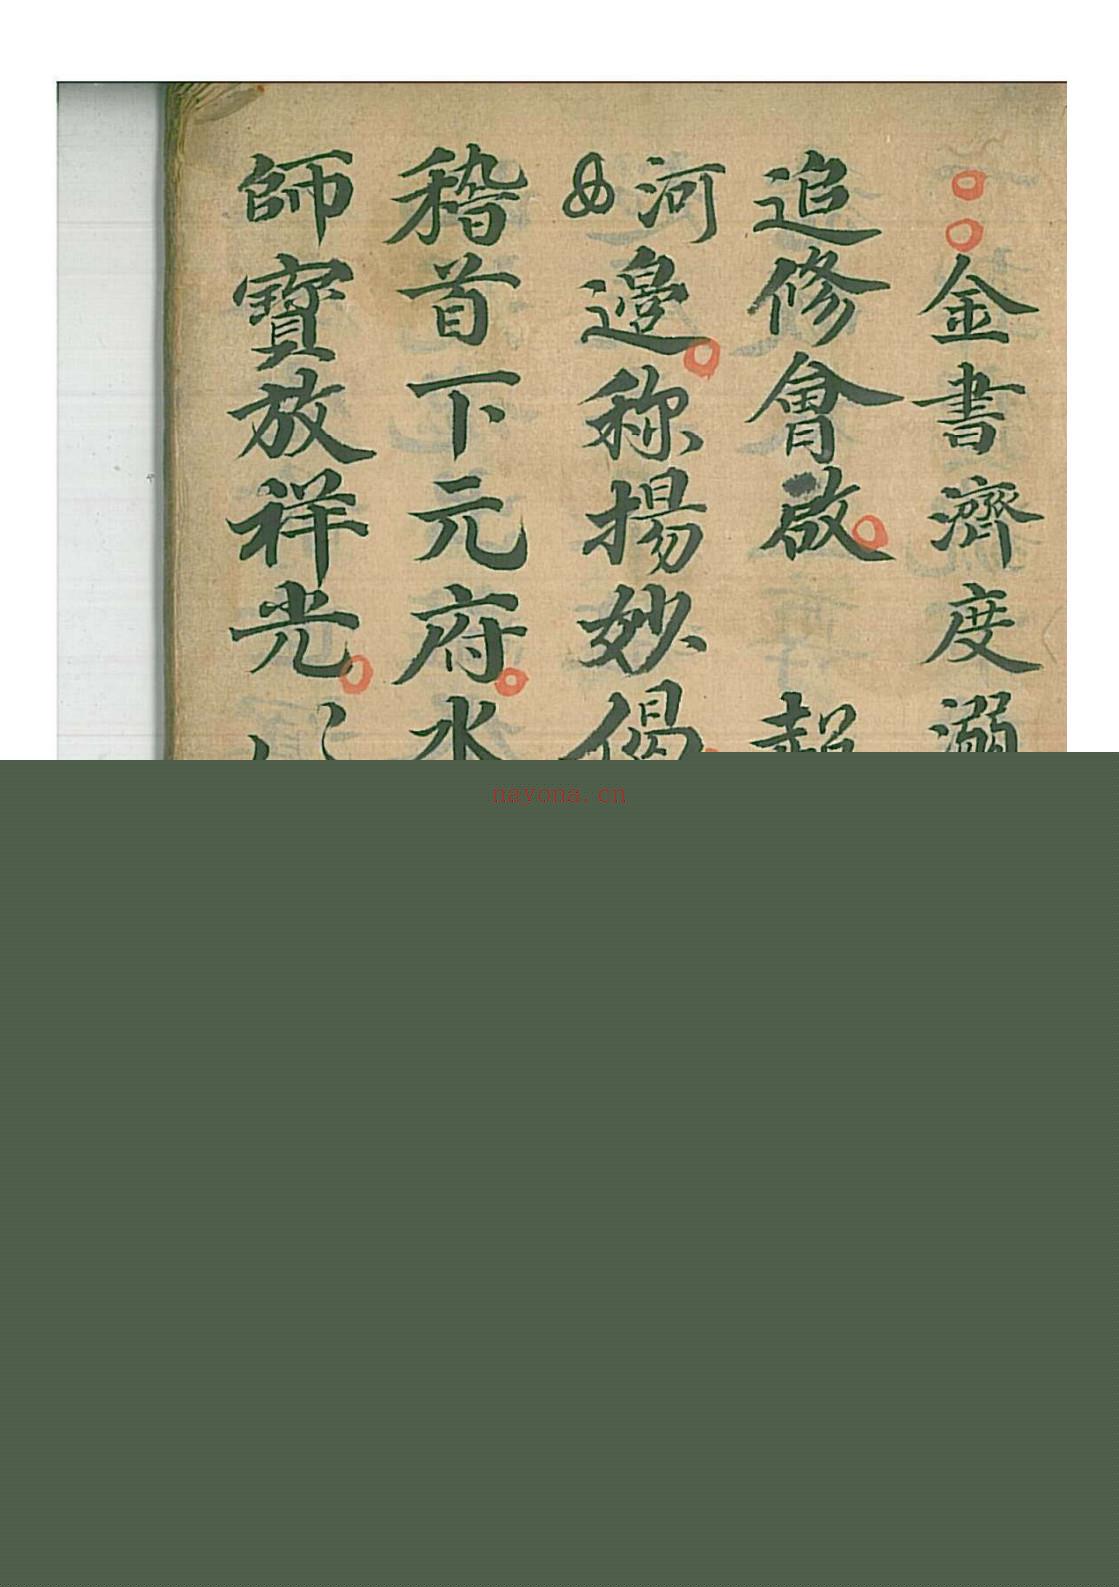 金書濟度溺
追修會啟
河邊称揚妙偈
稽首下元府水
師寶放祥光
nayona.cn